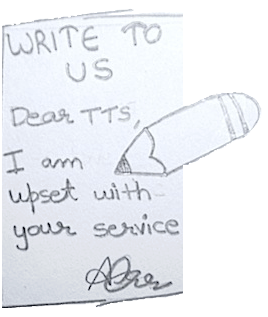 WRITE TO
US
Dear TTS,
I am
upset with
your service